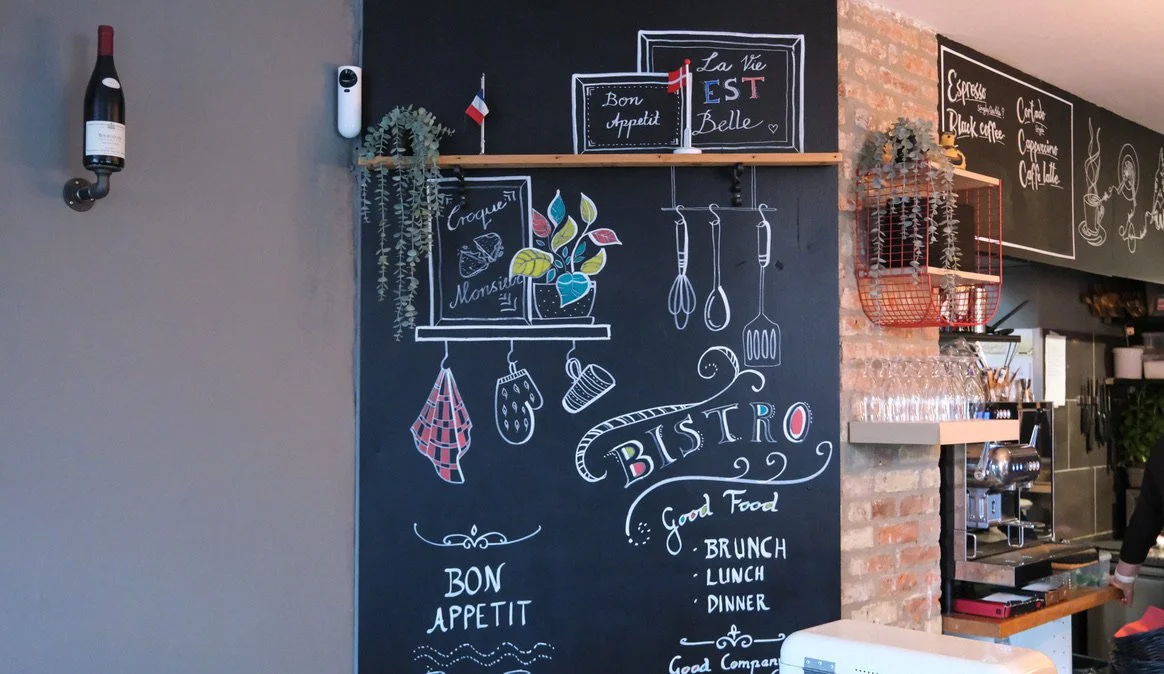 La Vie
EST
Belle
Bon
Appetit
Croque
Monsieur
BISTRO
Good Food
· BRUNCH
· LUNCH
· DINNER
BON
APPETIT
Good Company
Espresso
Black coffee
Cortado
Cappuccino
Caffe latte